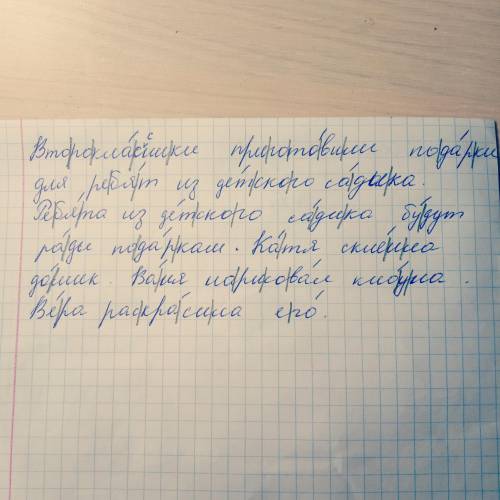 Второклассники приготовили подарки
для ребят из детского садика.
Ребята из детского садика будут
рады подаркам. Катя склеила
домик. Ваня нарисовал клоуна.
Вера раскрасила его.